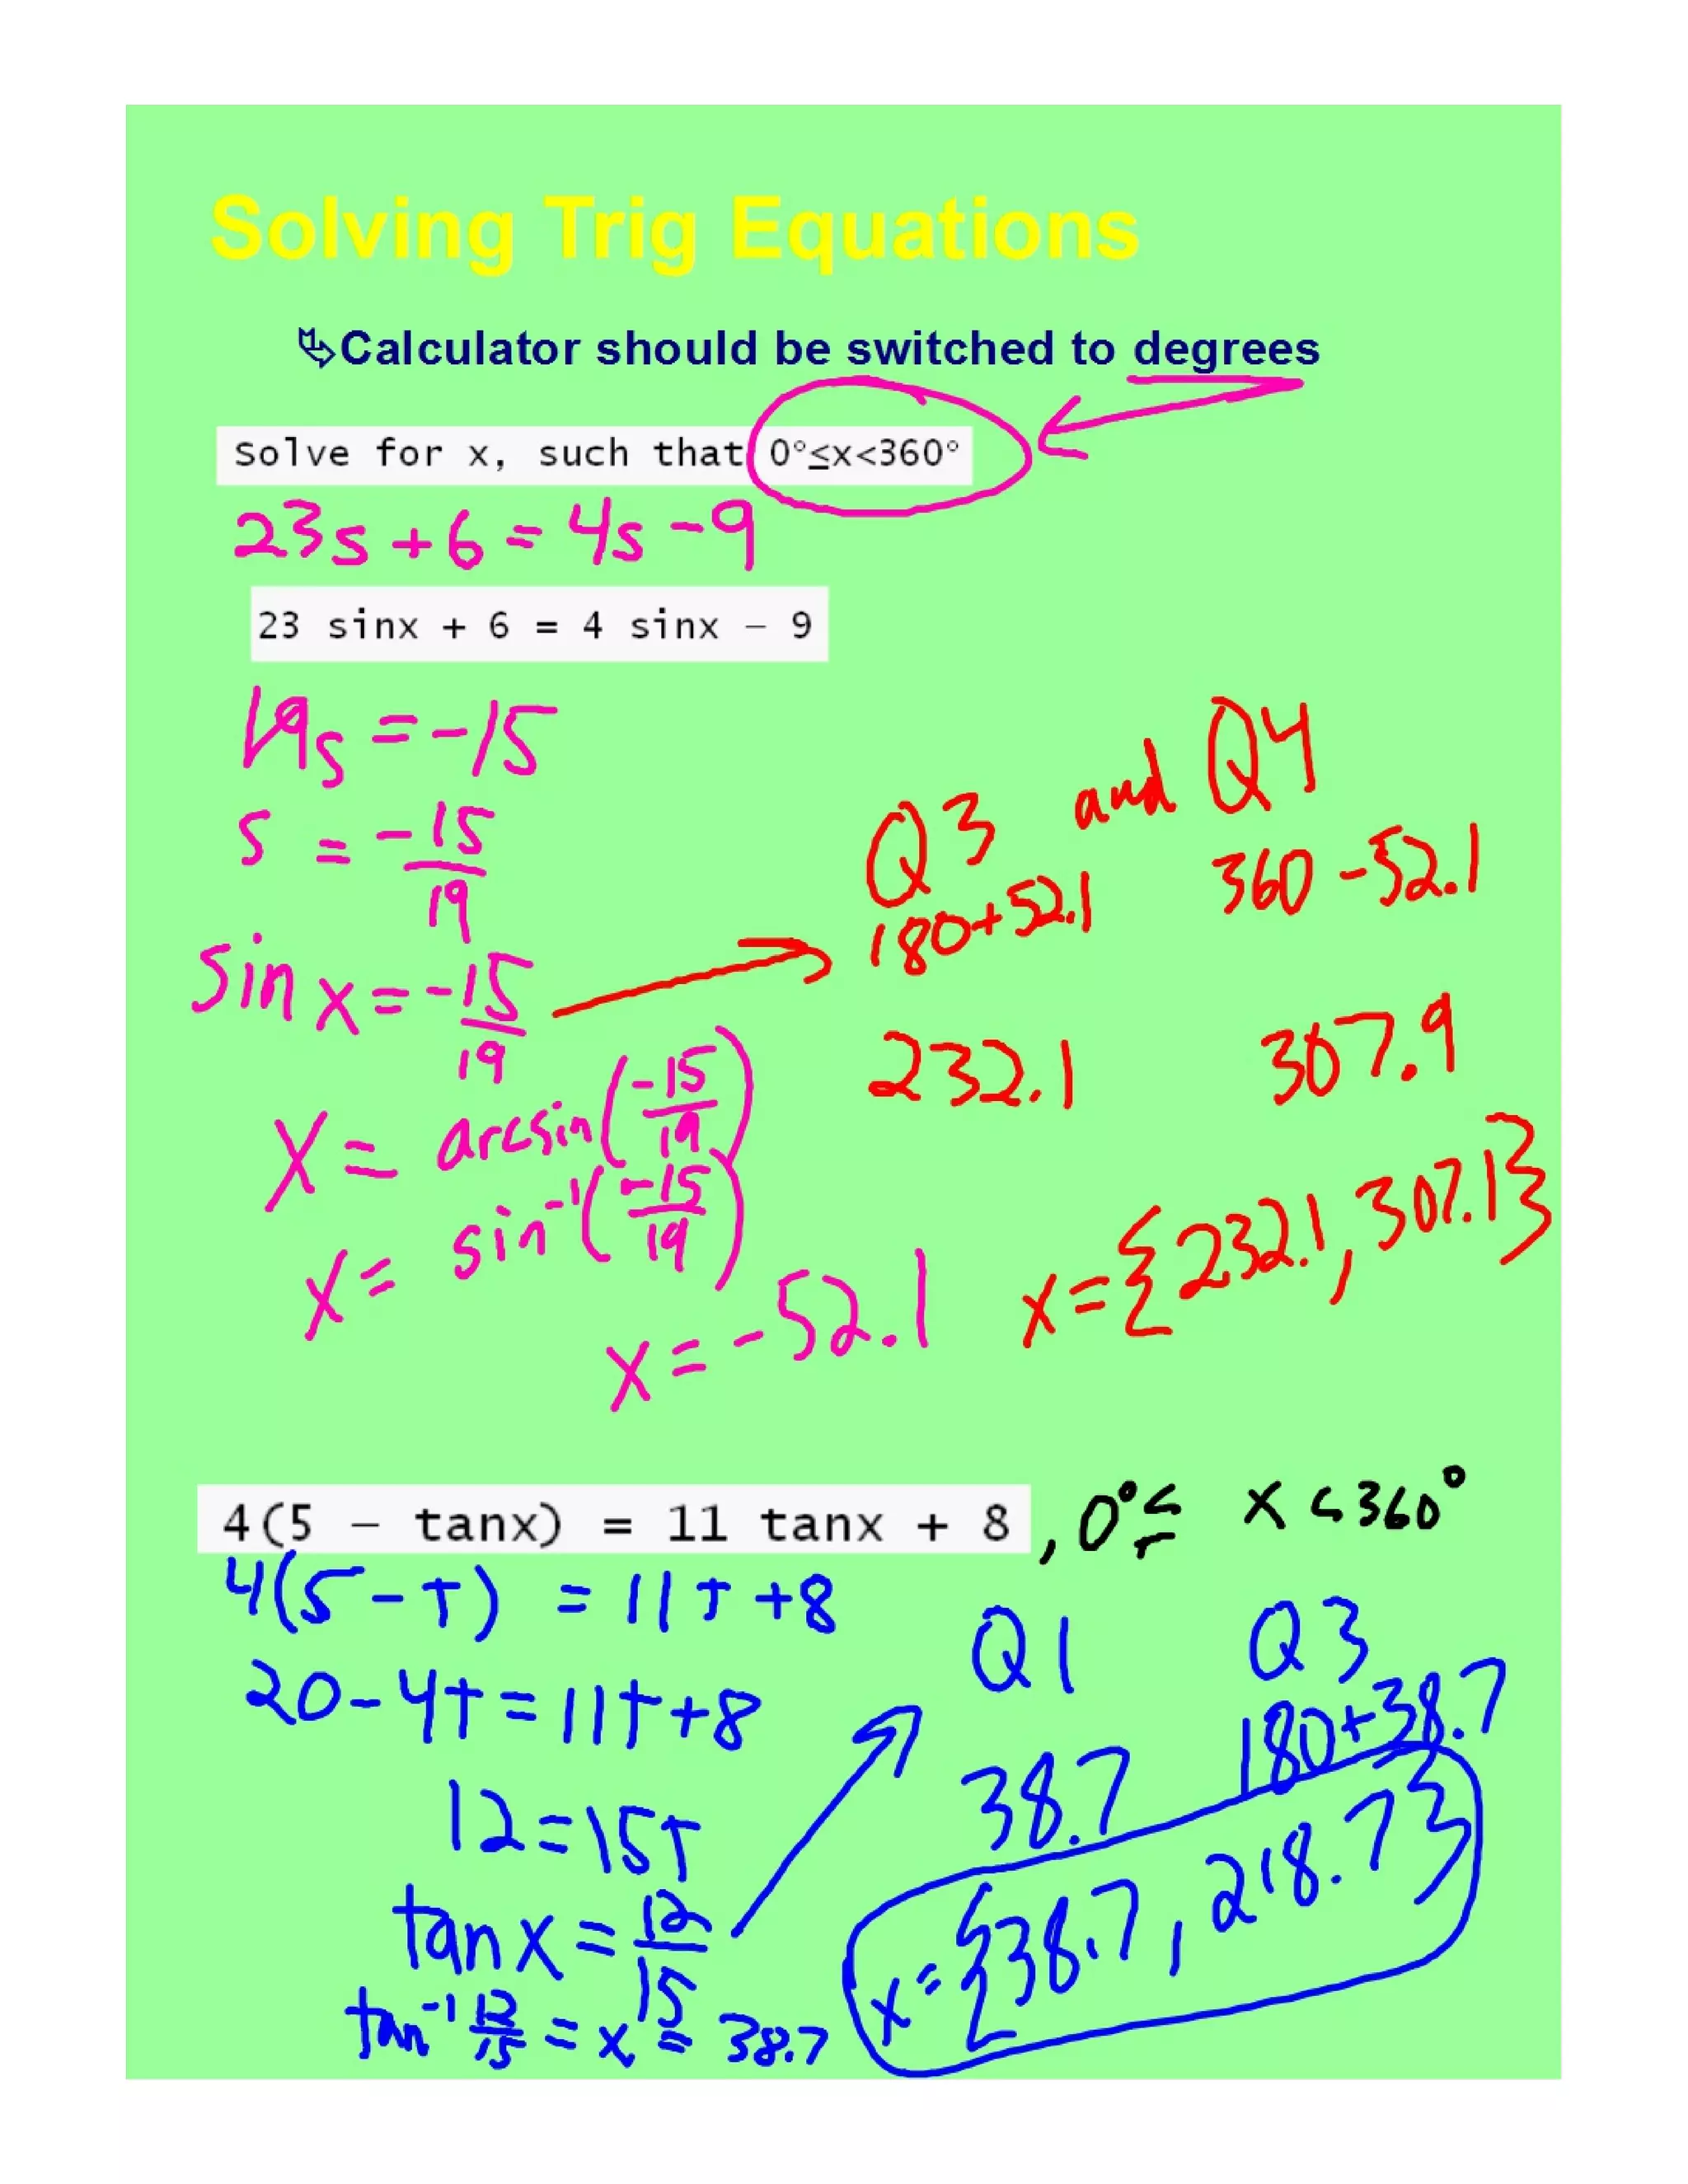 Solving Trig Equations
Calculator should be switched to degrees
Solve for x, such that 0°≤x<360°
23s + 6 = 4s - 9
23 sinx + 6 = 4 sinx − 9
19s = -15
s = -15/19
sin x = -15/19
x = arcsin(-15/19)
x = sin⁻¹(-15/19)
x = -52.1
Q3 and Q4
180+52.1 360-52.1
232.1 307.9
x = {232.1, 307.1}
4(5 − tanx) = 11 tanx + 8, 0° ≤ x < 360°
4(5-T) = 11T +8
20-4T = 11T+8
12=15T
tan x = 12/15
tan⁻¹ 12/15 = x = 38.7
Q1 Q3
38.7 180+38.7
x = {38.7, 218.7}